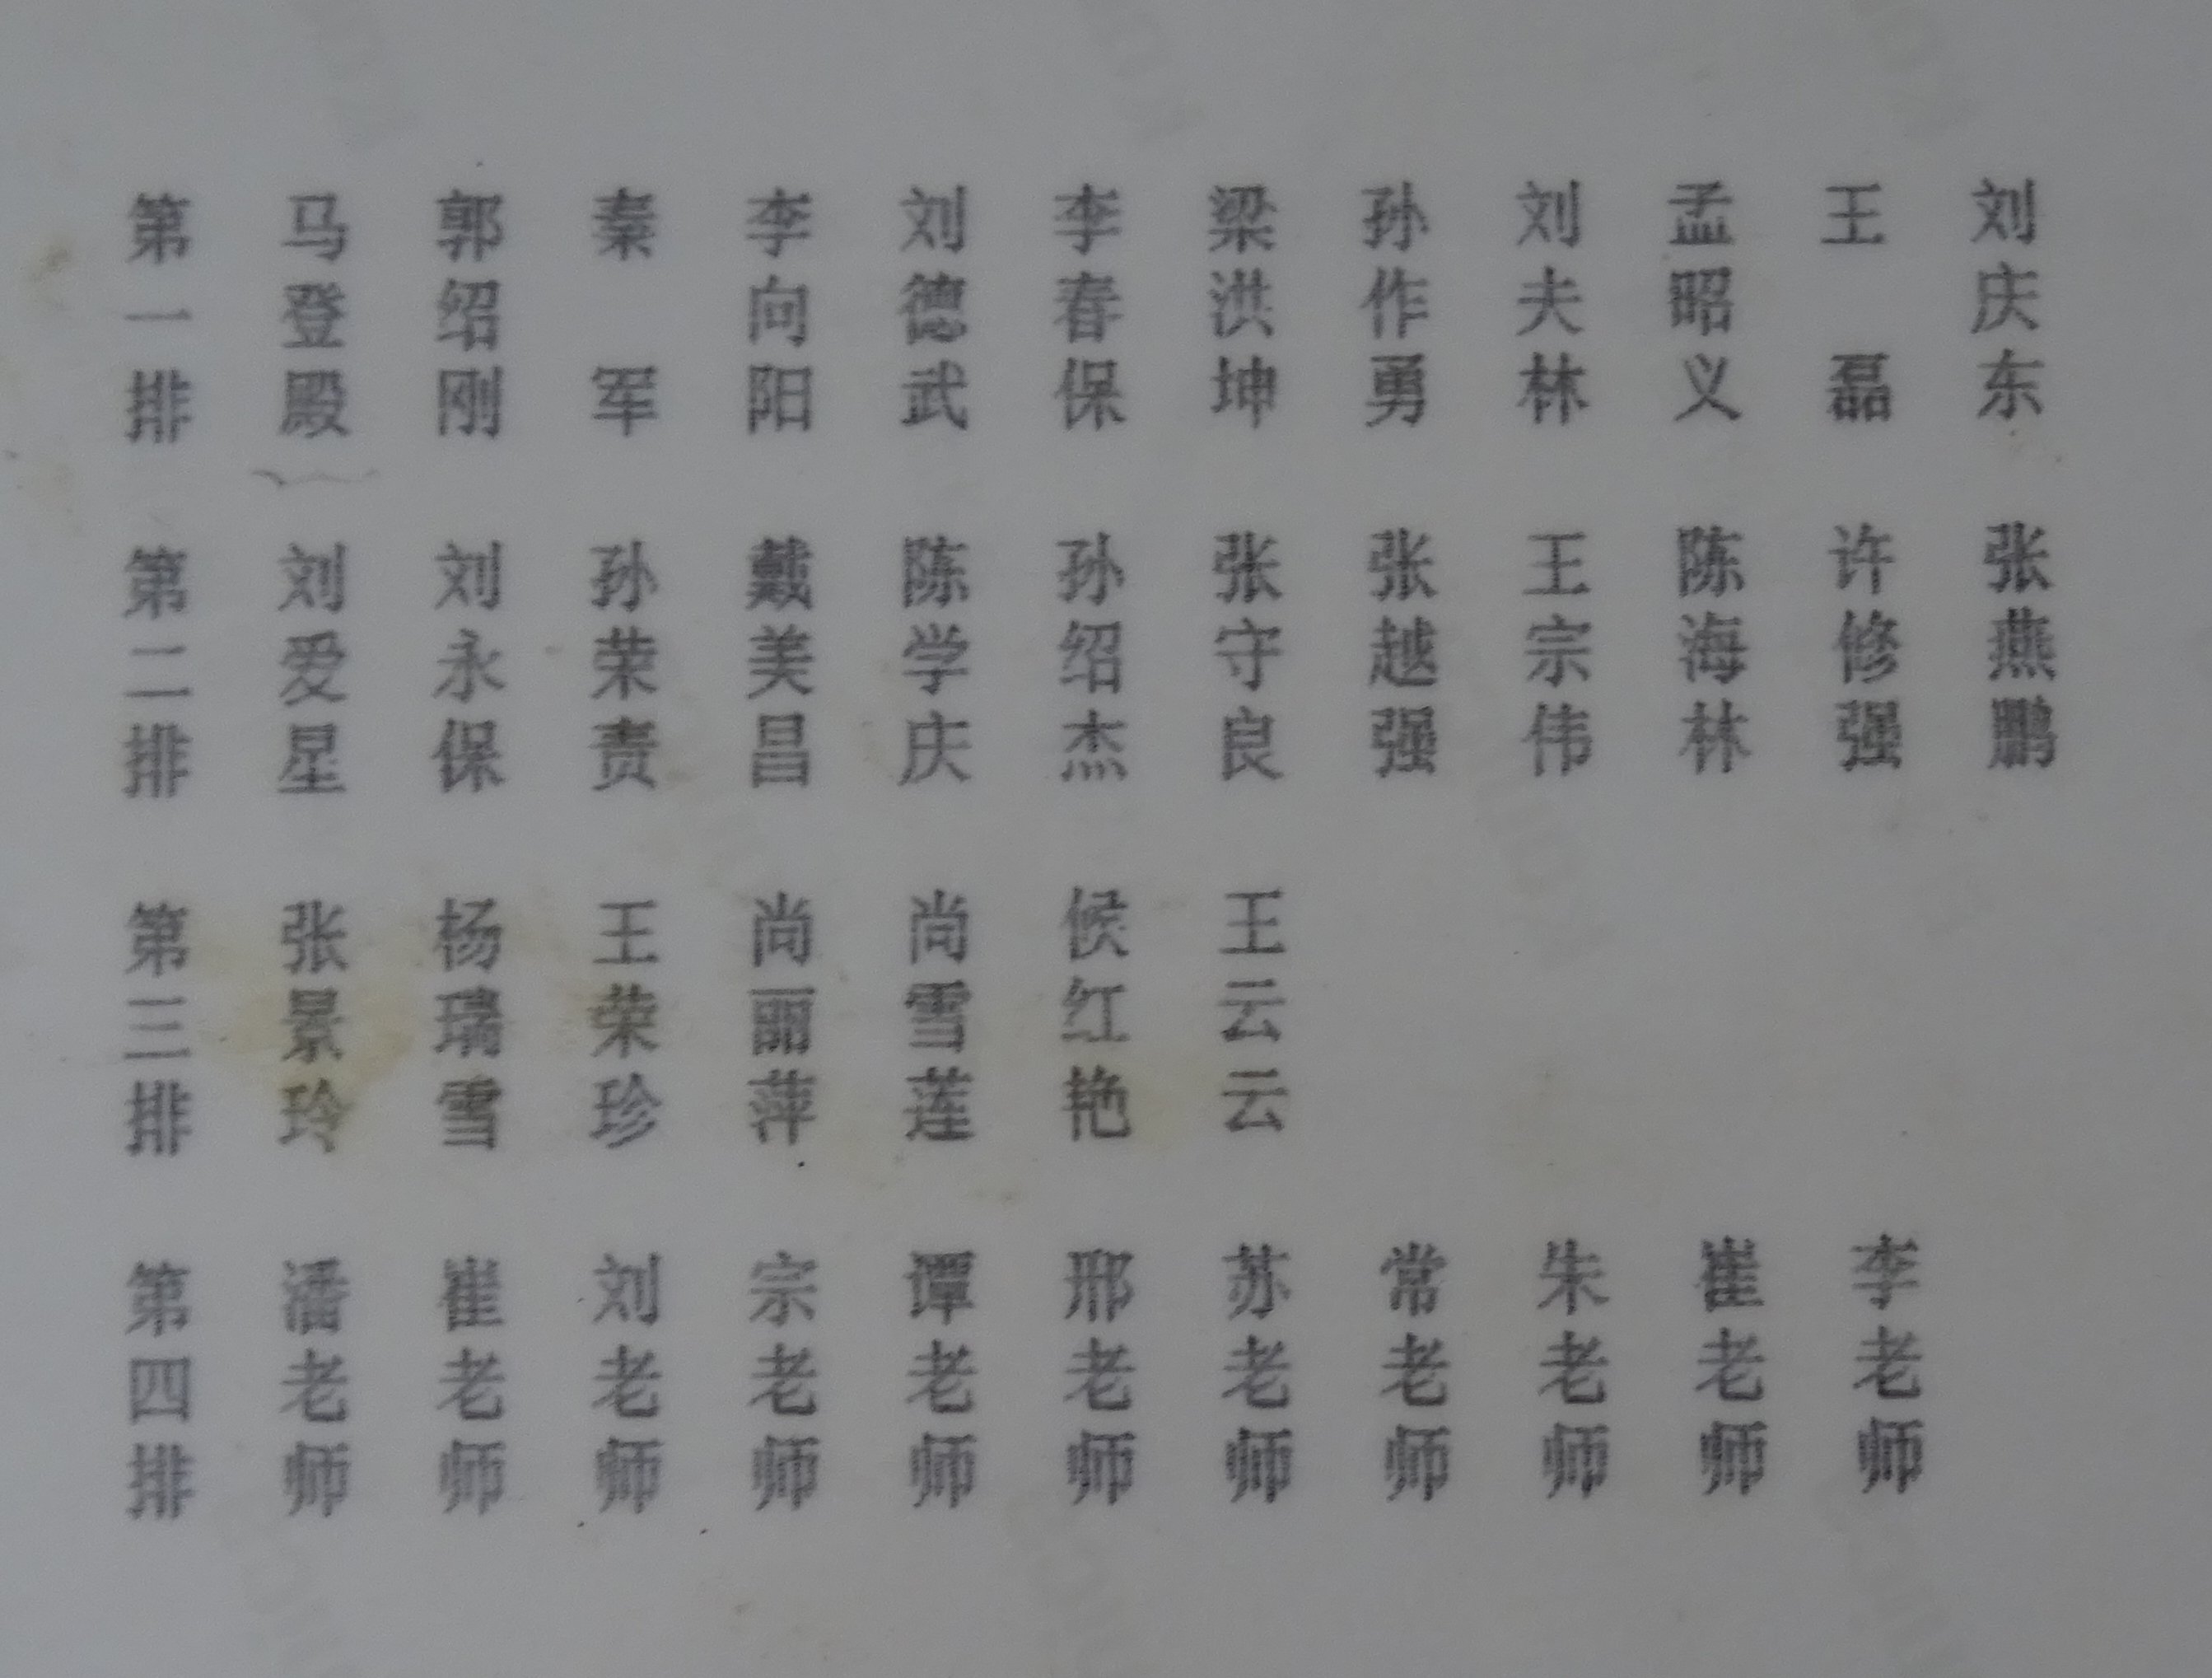 第一排 马登殿 郭绍刚 秦军 李向阳 刘德武 李春保 梁洪坤 孙作勇 刘夫林 孟昭义 王磊 刘庆东
第二排 刘爱星 刘永保 孙荣责 戴美昌 陈学庆 孙绍杰 张守良 张越强 王宗伟 陈海林 许修强 张燕鹏
第三排 张景玲 杨瑞雪 王荣珍 尚丽萍 尚雪莲 候红艳 王云云
第四排 潘老师 崔老师 刘老师 宗老师 谭老师 邢老师 苏老师 常老师 朱老师 崔老师 李老师